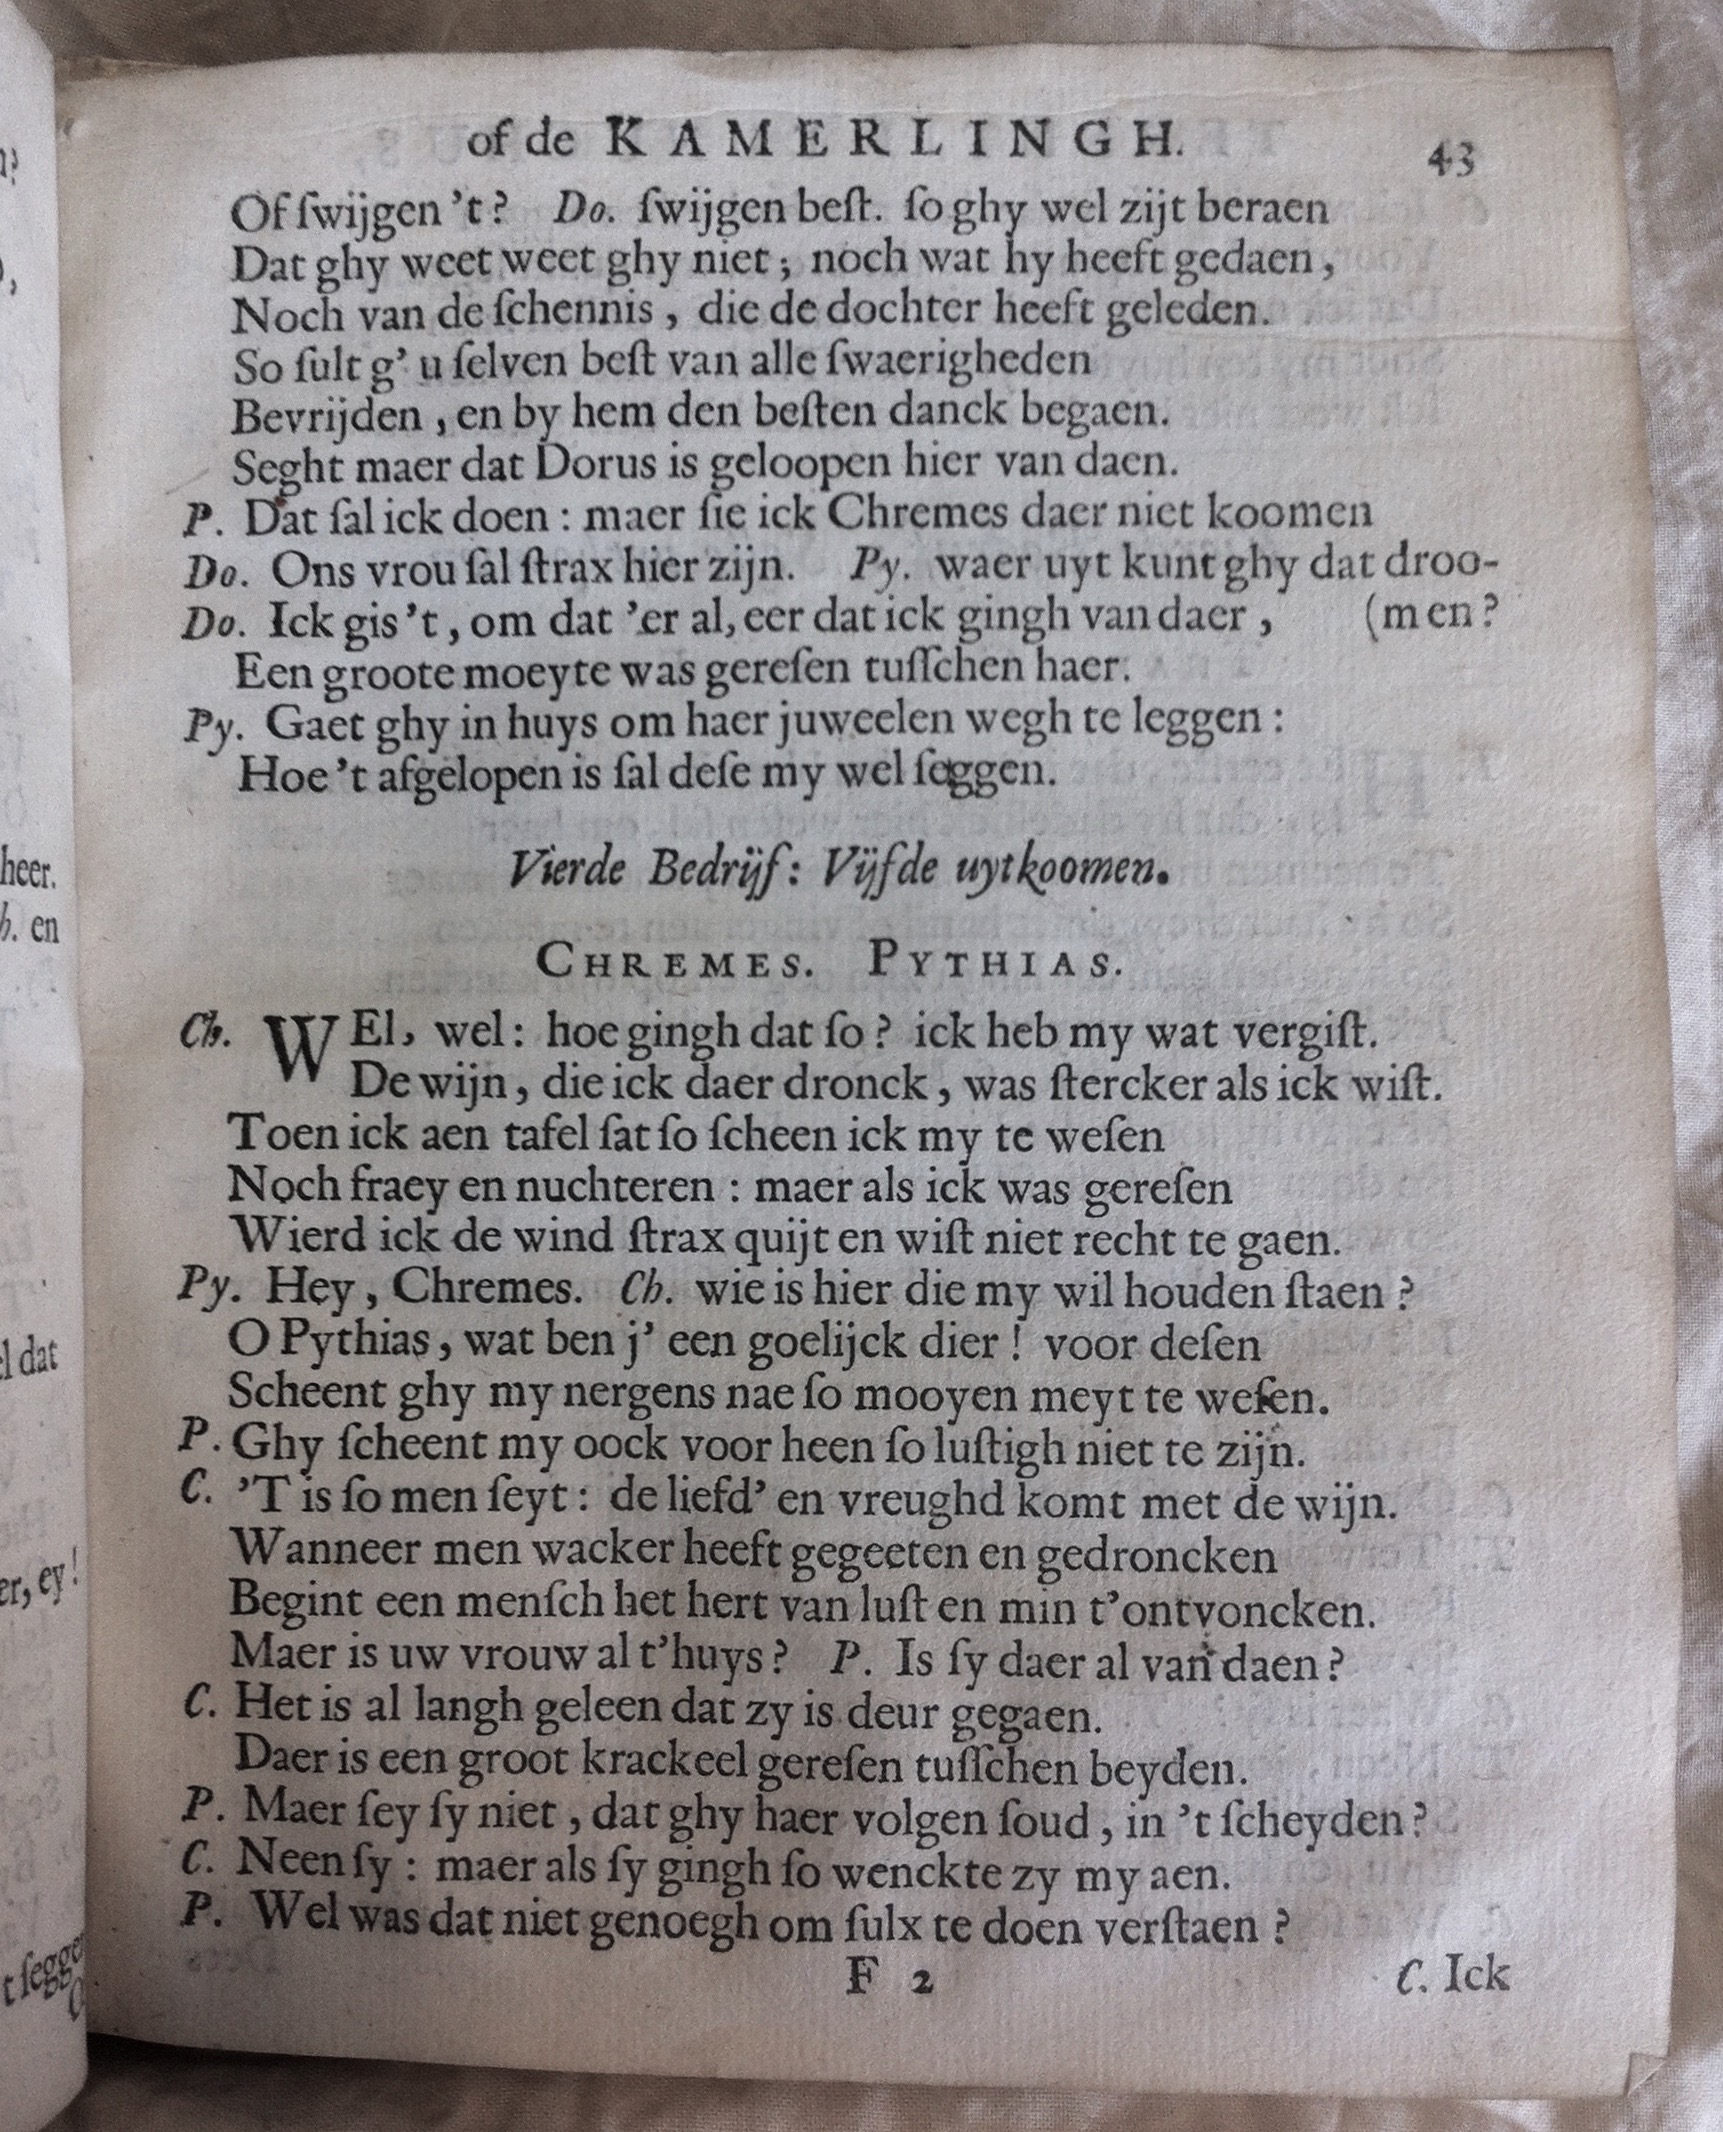 of de KAMERLINGH. 43
Of ſwijgen 't? Do. ſwijgen beſt. ſo ghy wel zijt beraen
Dat ghy weet weet ghy niet; noch wat hy heeft gedaen,
Noch van de ſchennis, die de dochter heeft geleden.
So ſult g' u ſelven beſt van alle ſwaerigheden
Bevrijden, en by hem den beſten danck begaen.
Seght maer dat Dorus is geloopen hier van daen.
P. Dat ſal ick doen: maer ſie ick Chremes daer niet koomen
Do. Ons vrou ſal ſtrax hier zijn. Py. waer uyt kunt ghy dat droo-
Do. Ick gis't, om dat 'er al, eer dat ick gingh van daer, (men?
Een groote moeyte was gereſen tuſſchen haer.
Py. Gaet ghy in huys om haer juweelen wegh te leggen:
Hoe 't afgelopen is ſal deſe my wel ſeggen.
Vierde Bedrijf: Vijfde uytkoomen.
CHREMES. PYTHIAS.
Ch. WEl, wel: hoe gingh dat ſo? ick heb my wat vergiſt.
De wijn, die ick daer dronck, was ſtercker als ick wiſt.
Toen ick aen tafel ſat ſo ſcheen ick my te weſen
Noch fraey en nuchteren: maer als ick was gereſen
Wierd ick de wind ſtrax quijt en wiſt niet recht te gaen.
Py. Hey, Chremes. Ch. wie is hier die my wil houden ſtaen?
O Pythias, wat ben j' een goelijck dier! voor deſen
Scheent ghy my nergens nae ſo mooyen meyt te weſen.
P. Ghy ſcheent my oock voor heen ſo luſtigh niet te zijn.
C. 'T is ſo men ſeyt: de liefd' en vreughd komt met de wijn.
Wanneer men wacker heeft gegeeten en gedroncken
Begint een menſch het hert van luſt en min t'ontvoncken.
Maer is uw vrouw al t'huys? P. Is ſy daer al van daen?
C. Het is al langh geleen dat zy is deur gegaen.
Daer is een groot krackeel gereſen tuſſchen beyden.
P. Maer ſey ſy niet, dat ghy haer volgen ſoud, in 't ſcheyden?
C. Neen ſy: maer als ſy gingh ſo wenckte zy my aen.
P. Wel was dat niet genoegh om ſulx te doen verſtaen?
F 2 C. Ick
heer.
h. en
el dat
er, ey!
t ſegge